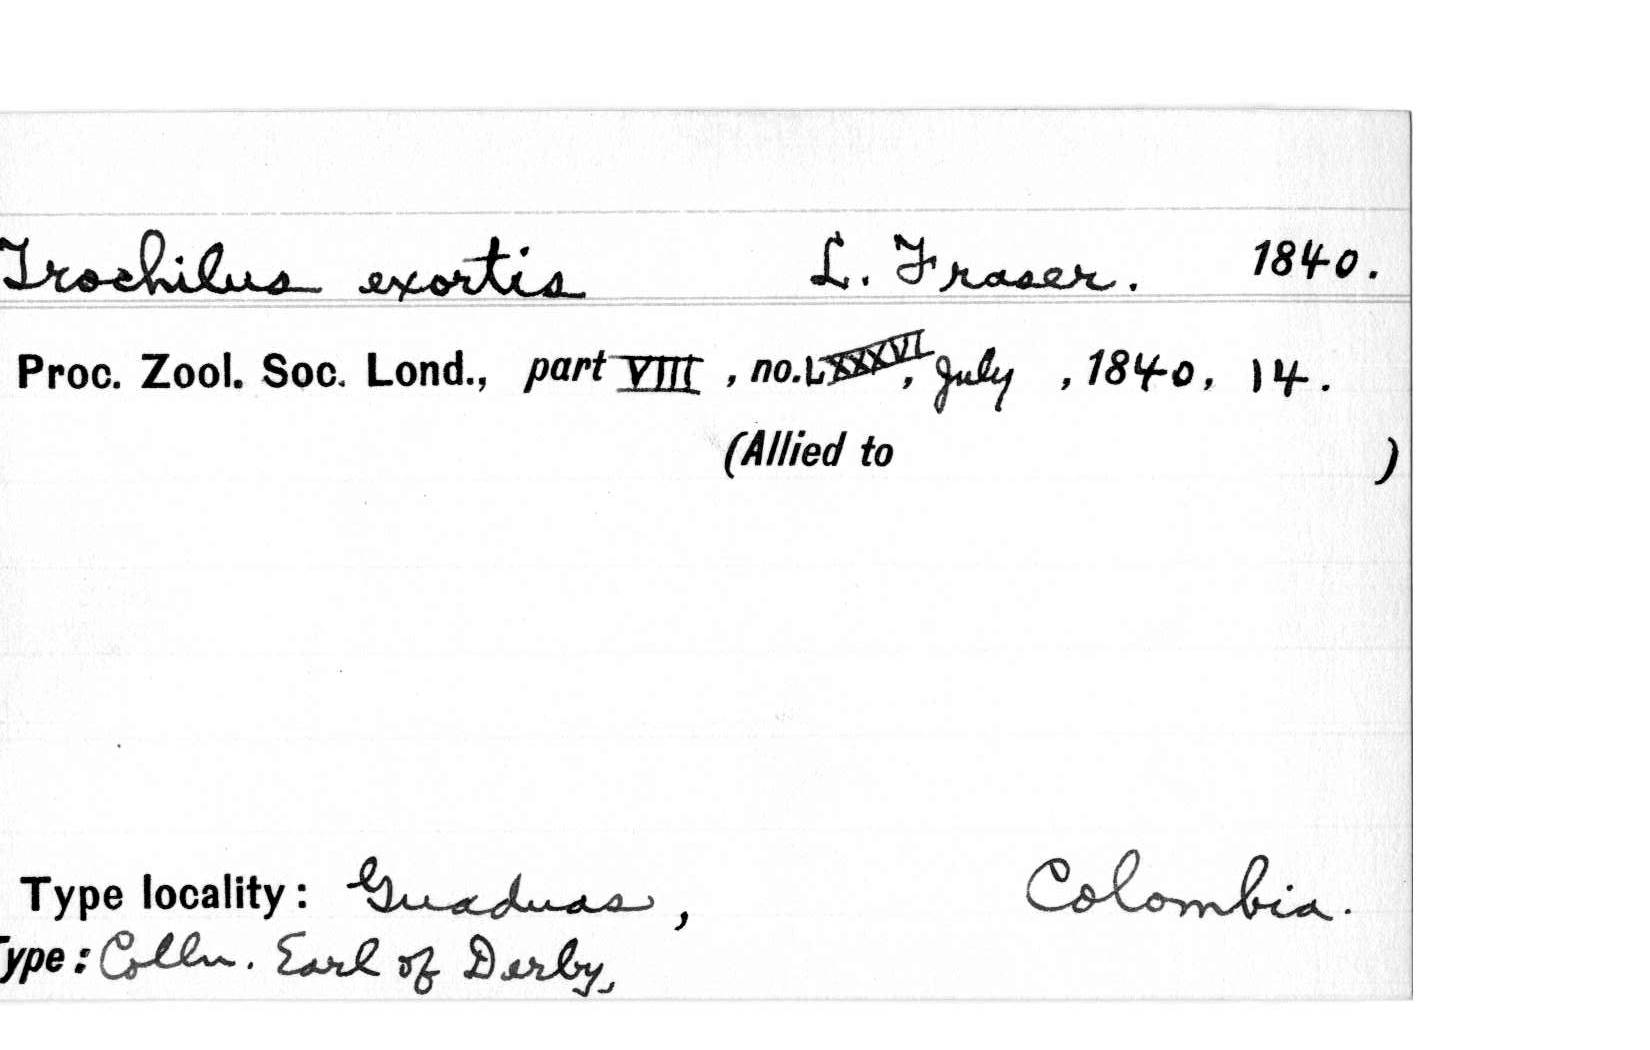 Trochilus exortis L. Fraser. 1840.
Proc. Zool. Soc. Lond., part VIII, no. LXXXVI, July, 1840, 14.
(Allied to )
Type locality: Guaduas, Colombia.
Type: Colln. Earl of Derby,